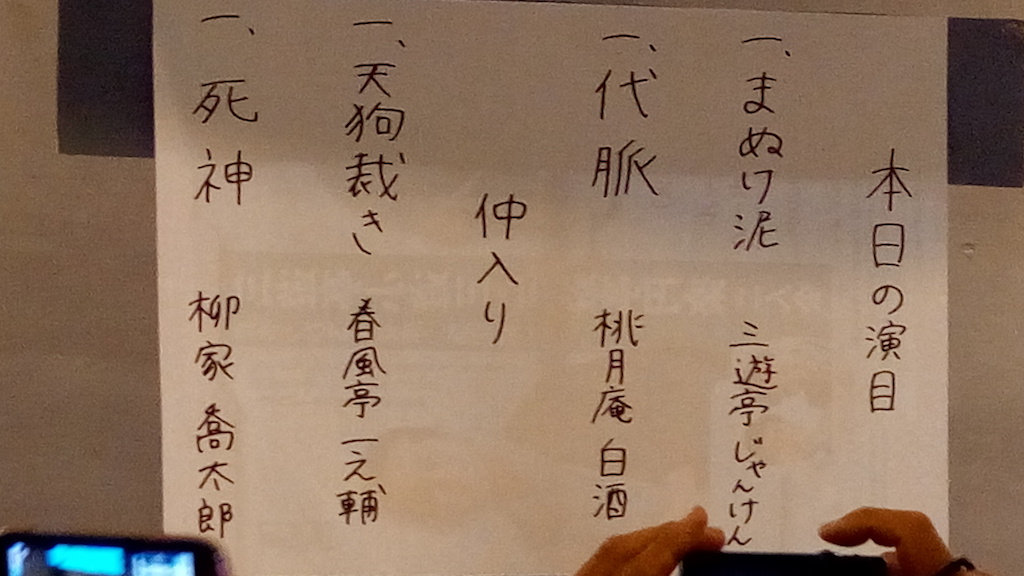 本日の演目
一、まぬけ泥 三遊亭じゃんけん
一、代脈 桃月庵 白酒
仲入り
一、天狗裁き 春風亭 一之輔
一、死神 柳家 喬太郎